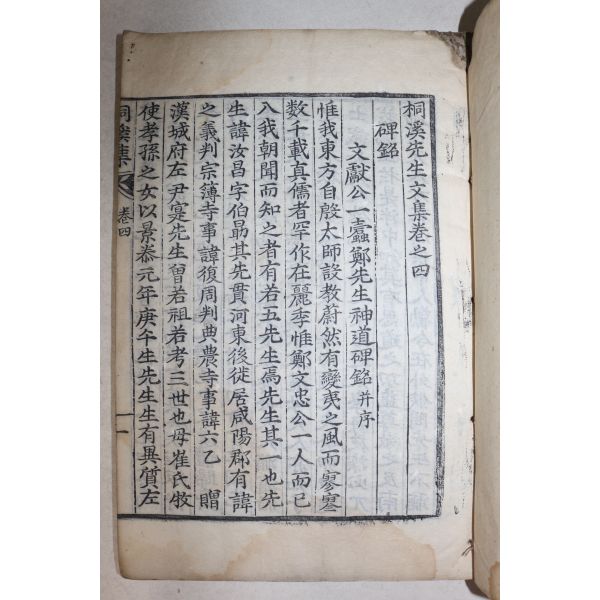 桐溪先生文集卷之四
碑銘
文獻公一蠹鄭先生神道碑銘 幷序
惟我東方自殷太師設教蔚然有變夷之風而寥寥
数千載真儒者罕作在麗季惟鄭文忠公一人而已
入我朝聞而知之者有若五先生焉先生其一也先
生諱汝昌字伯勗其先貫河東後徙居咸陽郡有諱
之義判宗簿寺事諱復周判典農寺事諱六乙 贈
漢城府左尹寔先生曾若祖若考三世也母崔氏牧
使孝孫之女以景泰元年庚午生先生生有異質左
桐溪集 卷四 一